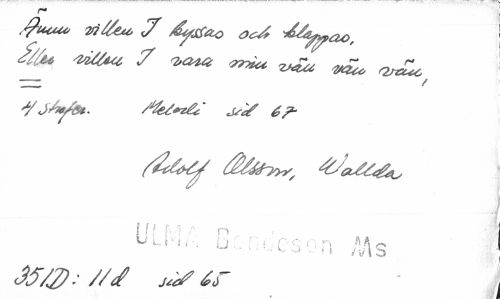 Ännu villen I kyssas och klappas,
Eller villen I vara min vän vän vän,
4 strofer. Melodi sid 67
Adolf Olsson, Wallda
ULMA Bondeson Ms
351D: 11d sid 65